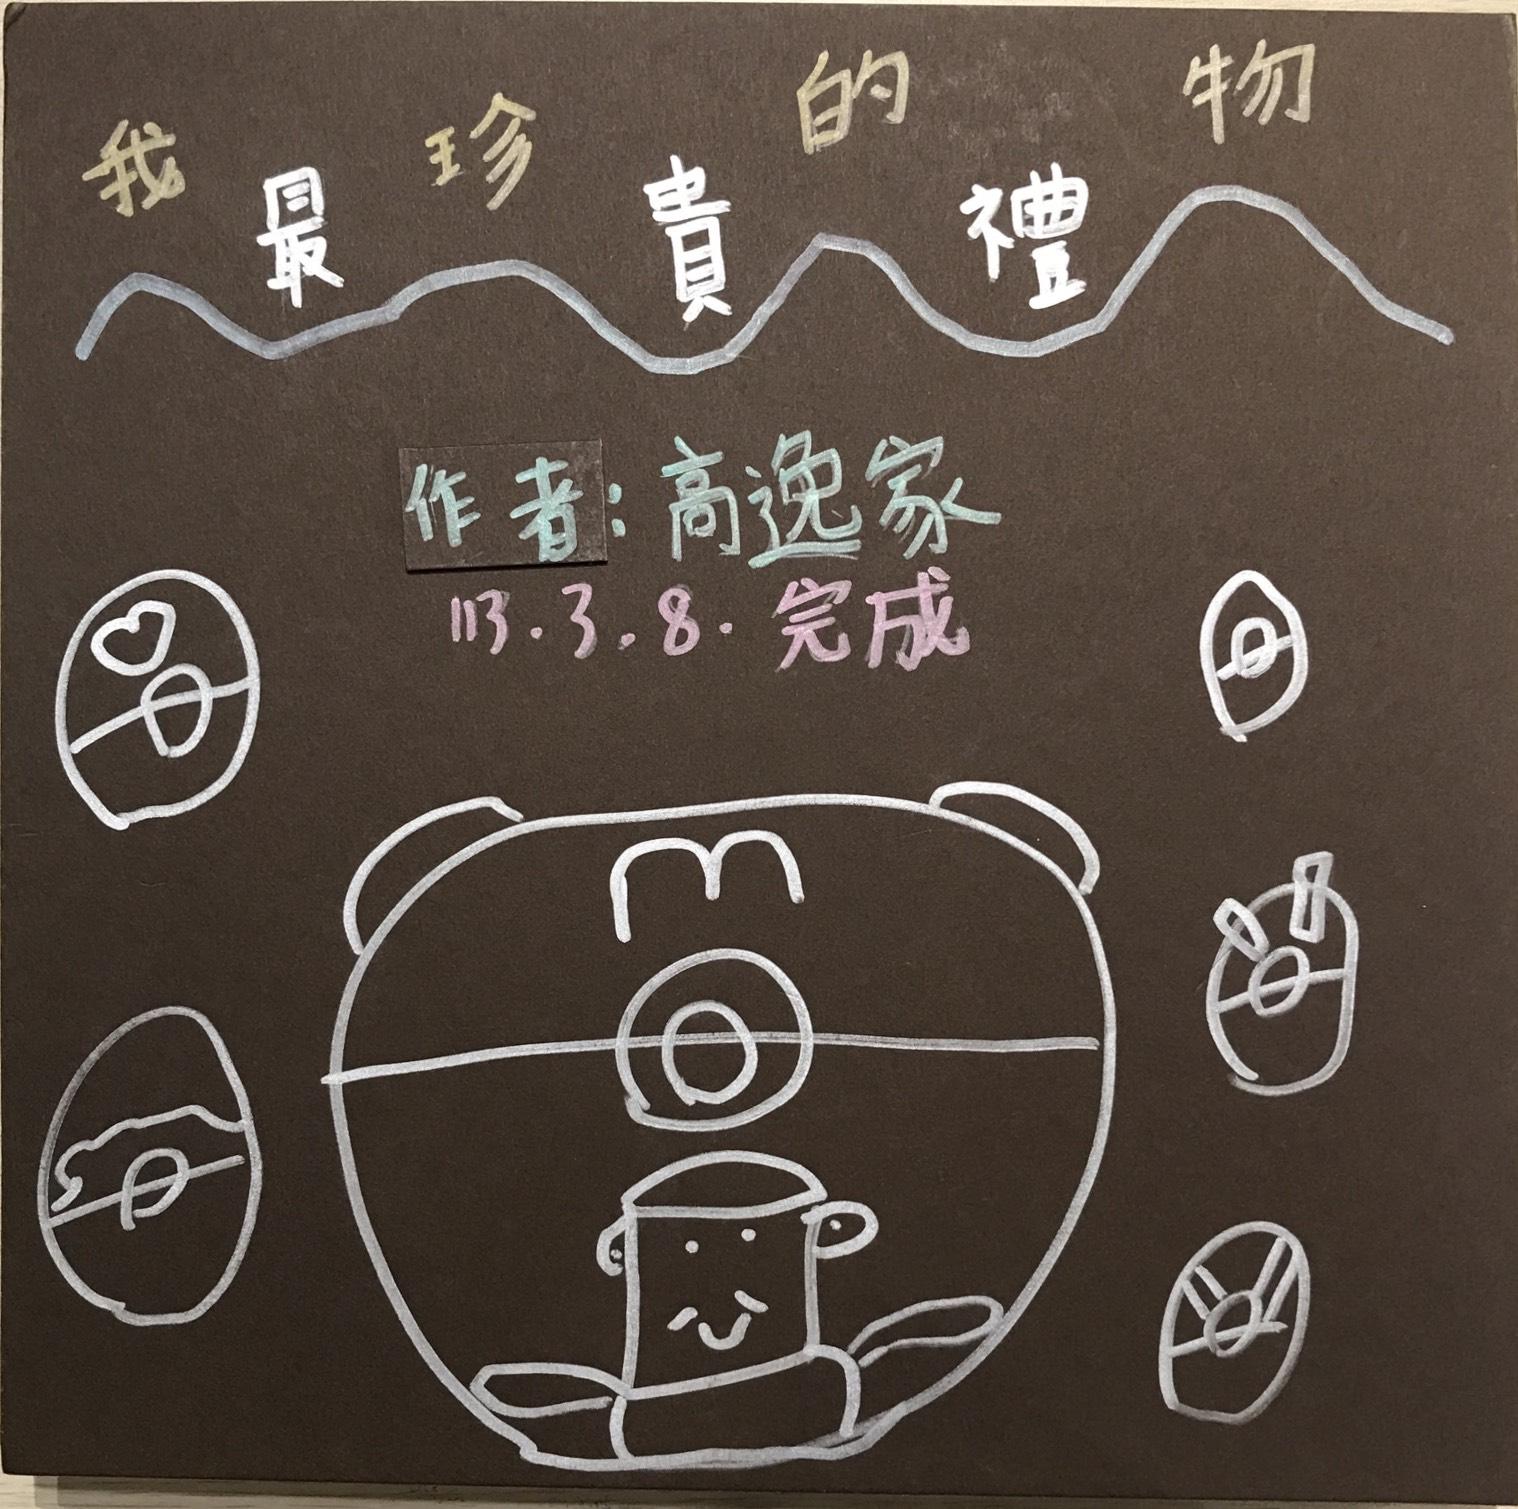 我最珍貴的禮物
作者:高逸家
113.3.8.完成